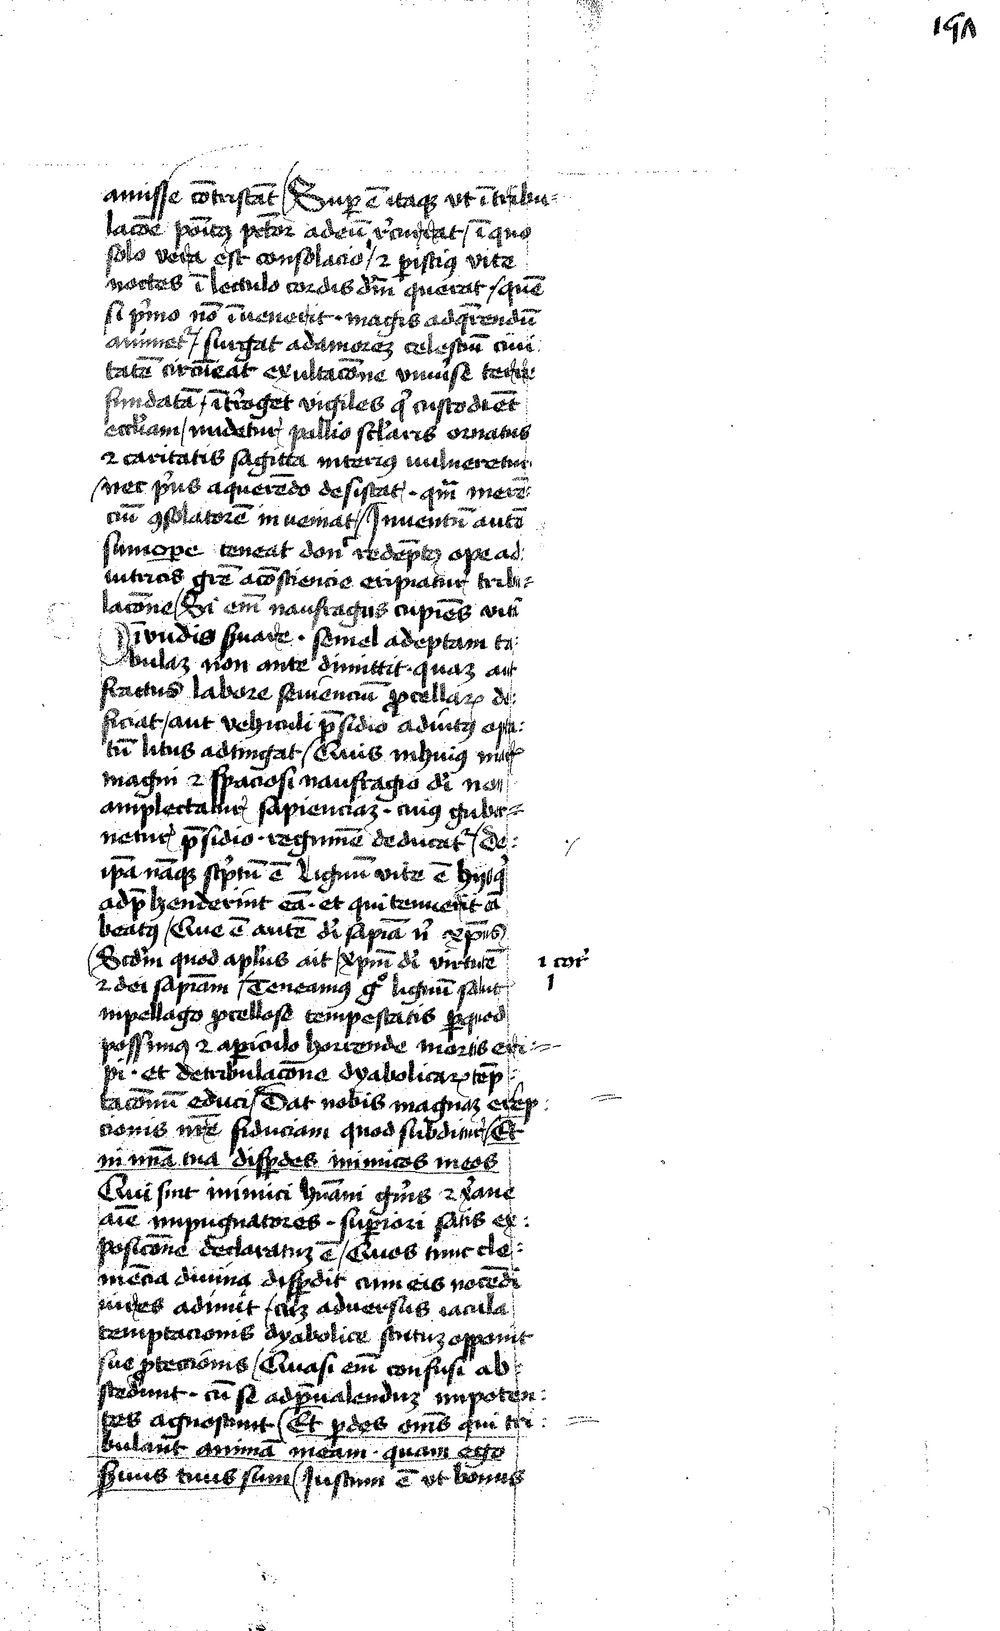 191
amisse cōtristāt / Sup ē itaq; ut ī tribu=
lacōe pōit9 pctor ad eū rͨcurrat / ī quo
solo vera est consolacio / ⁊ p istius vite
noctes ī lectulo cordis dm̄ querat / quē
si p̛mo nō īvenerit · magis ad q̄rendū
animet᷑ / surgat ad amorez celestiū civi
tatē circūeat exultacōne univ̛se terre
fundatā / īt̛roget vigiles q̛ custodiēt
eccl̛iam / nudetur pallio sc̄laris ornatus
⁊ caritatis sagitta interi9 vulneretur
/ nec p̛us a querēdo desistat · qm̄ merē
ciū 9solatorē inveniat / Inventū autē
sumope teneat don̛ redēpt9 ope ad
iutricis gr̄e a cōsciencie eripiatur tribu=
lacōne / Si em̄ naufragus cupiēs viti
ī undis s̛uare · semel adeptam ta
bulaz non ante dimittit · quaz aut
fractus labore sevienciū ꝓcellaꝝ de
ficiat / aut vehiculi p̄sidio adiut9 opta
tū litus adtingat / Quis in hui9 mar̛
magni ⁊ spaciosi naufragio di̛ non
amplectatur sapienciaz · cui9 guber=
netur p̄sidio · regimīe deducat᷑ / De
ip̄a nāq; sc̛ptū ē Lignū vite ē hijs q̛
adp̄henderint eā · et qui tenuerit eā
beat9 / Que ē autē di̛ sapīa n̛ xp̄us
/ Scdm̄ quod apl̛us ait / xp̄m di̛ virtutē 1 cor̛
⁊ dei sapīam / Teneamus gͦ lignū salut 1
in pellago ꝓcellose tempestatis p quod
possim9 ⁊ a piculo horrende mortis eri=
pi · et de tribulacōne dyabolicaꝝ tēp
tacōnū educi / Dat nobis magnaz erep
cionis nr̄e fiduciam quod subditur / Et
in mīa tua dispdes inimicos meos
Qui sint inimici hūani gn̛is ⁊ x̛ane
aīe impugnatores · superiori satis ex
posicōne declaratuz ē / Quos tunc cle
mēcia divina dispdit cum eis nocēdi
vires adimit / cuz adversus iacula
temptacionis dyabolice scutuz opponit
sue ꝓtectionis / Quasi em̄ confusi ab
scedunt · cū se ad p̄ualenduz impoten
tes agnoscunt / Et pdes om̄s qui tri
bulant animā meam · quam ego
s̛vus tuus sum / Iustum ē ut bonus